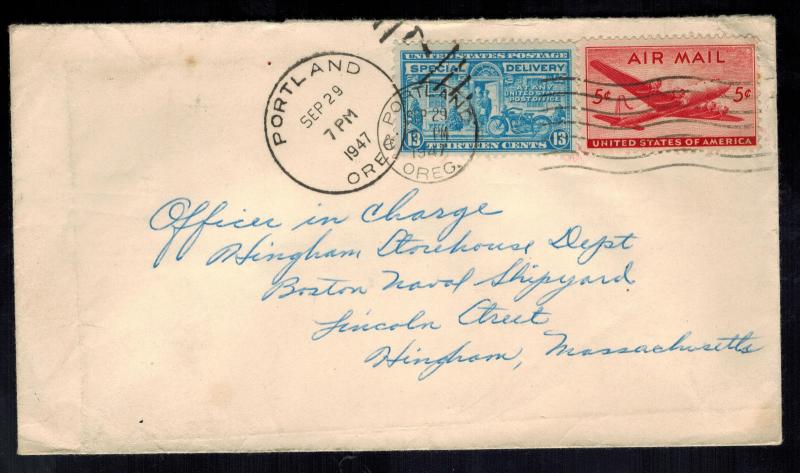 PORTLAND
SEP 29
7 PM
1947
OREG.
PORTLAND
SEP 29
PM
1947
OREG.
UNITED STATES POSTAGE
SPECIAL DELIVERY
AT ANY
UNITED STATES
POST OFFICE
13 13
THIRTEEN CENTS
AIR MAIL
5¢ 5¢
UNITED STATES OF AMERICA
Officer in Charge
Hingham Storehouse Dept
Boston Naval Shipyard
Lincoln Street
Hingham, Massachusetts